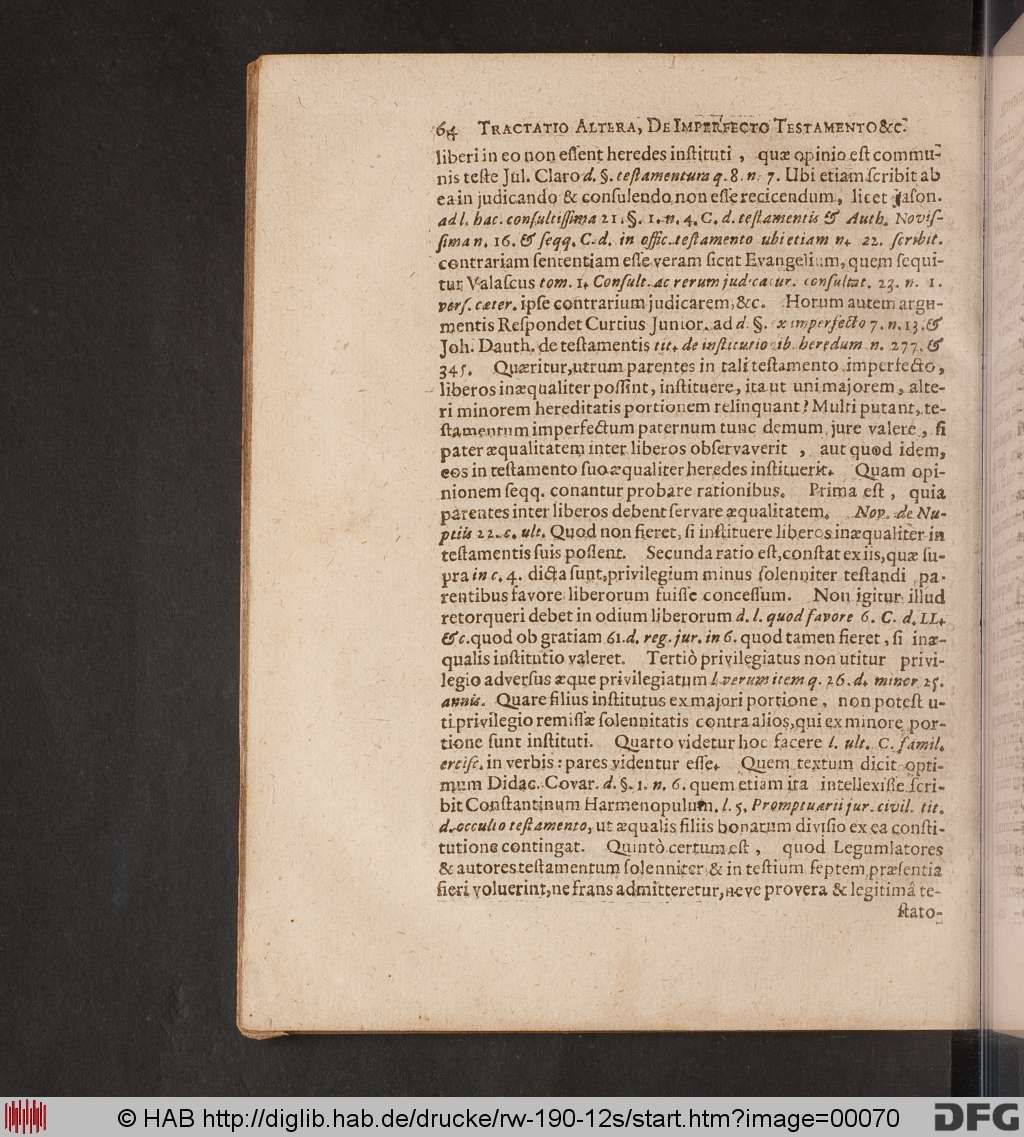 64 TRACTATIO ALTERA, DE IMPERFECTO TESTAMENTO &c.
liberi in eo non eſſent heredes inſtituti, quæ opinio eſt commu-
nis teſte Jul. Claro d. §. teſtamentum q. 8. n. 7. Ubi etiam ſcribit ab
ea in judicando & conſulendo non eſſe recicendum, licet Jaſon.
ad l. hac. conſultiſſima 21. §. 1. n. 4. C. d. teſtamentis & Auth. Noviſ-
ſima n. 16. & ſeqq. C. d. in offic. teſtamento ubi etiam n. 22. ſcribit.
contrariam ſententiam eſſe veram ſicut Evangelium, quem ſequi-
tur Valaſcus tom. 1. Conſult. ac rerum judicatur. conſultat. 23. n. 1.
verſ. cæter. ipſe contrarium judicarem, &c. Horum autem argu-
mentis Reſpondet Curtius Junior. ad d. §. ex imperfecto 7. n. 13. &
Joh. Dauth. de teſtamentis tit. de inſtitutio ib. heredum n. 277. &
345. Quæritur, utrum parentes in tali teſtamento imperfecto,
liberos inæqualiter poſſint, inſtituere, ita ut uni majorem, alte-
ri minorem hereditatis portionem relinquant? Multi putant, te-
ſtamentum imperfectum paternum tunc demum jure valere, ſi
pater æqualitatem inter liberos obſervaverit, aut quod idem,
eos in teſtamento ſuo æqualiter heredes inſtituerit. Quam opi-
nionem ſeqq. conantur probare rationibus. Prima eſt, quia
parentes inter liberos debent ſervare æqualitatem. Nov. de Nu-
ptiis 22. c. ult. Quod non fieret, ſi inſtituere liberos inæqualiter in
teſtamentis ſuis poſſent. Secunda ratio eſt, conſtat ex iis, quæ ſu-
pra in c. 4. dicta ſunt, privilegium minus ſolenniter teſtandi pa-
rentibus favore liberorum fuiſſe conceſſum. Non igitur illud
retorqueri debet in odium liberorum d. l. quod favore 6. C. d. LL.
& c. quod ob gratiam 61. d. reg. jur. in 6. quod tamen fieret, ſi inæ-
qualis inſtitutio valeret. Tertiò privilegiatus non utitur privi-
legio adverſus æque privilegiatum l. verum item q. 26. d. minor 25.
annis. Quare filius inſtitutus ex majori portione, non poteſt u-
ti privilegio remiſſæ ſolennitatis contra alios, qui ex minore por-
tione ſunt inſtituti. Quarto videtur hoc facere l. ult. C. famil.
erciſc. in verbis: pares videntur eſſe. Quem textum dicit opti-
mum Didac. Covar. d. §. 1. n. 6. quem etiam ita intellexiſſe ſcri-
bit Conſtantinum Harmenopulum. l. 5. Promptuarii jur. civil. tit.
d. occulto teſtamento, ut æqualis filiis bonarum diviſio ex ea conſti-
tutione contingat. Quintò certum eſt, quod Legumlatores
& autores teſtamentum ſolenniter & in teſtium ſeptem præſentia
fieri voluerint, ne frans admitteretur, neve pro vera & legitimâ te-
ſtato-
© HAB http://diglib.hab.de/drucke/rw-190-12s/start.htm?image=00070
DFG